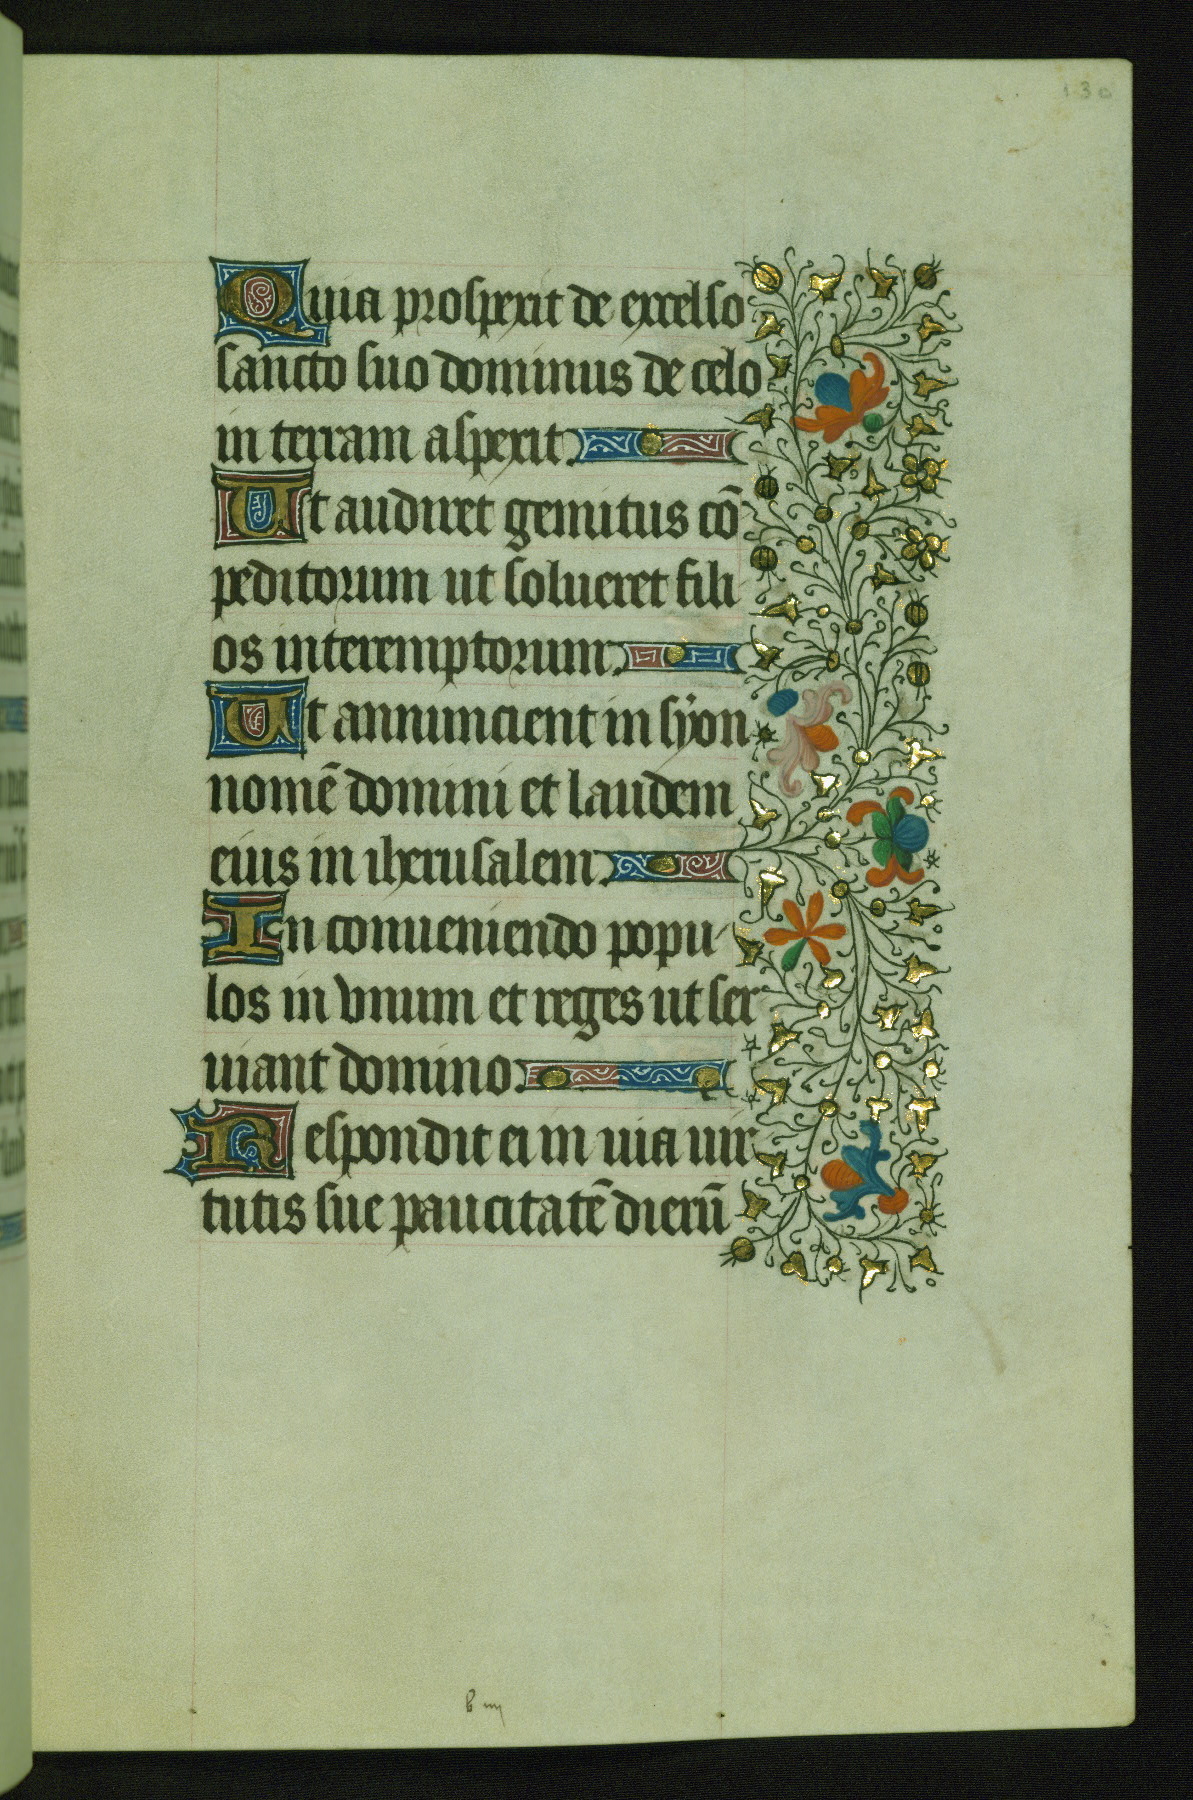 130
Quia prospexit de excelso
sancto suo dominus de celo
in terram aspexit.
Ut audiret gemitus cō
peditorum ut solueret fili
os interemptorum.
Ut annuncient in syon
nomē domini et laudem
eius in iherusalem.
In conueniendo popu
los in vnum et reges ut ser
uiant domino.
Respondit ei in uia uir
tutis sue paucitatē dierū